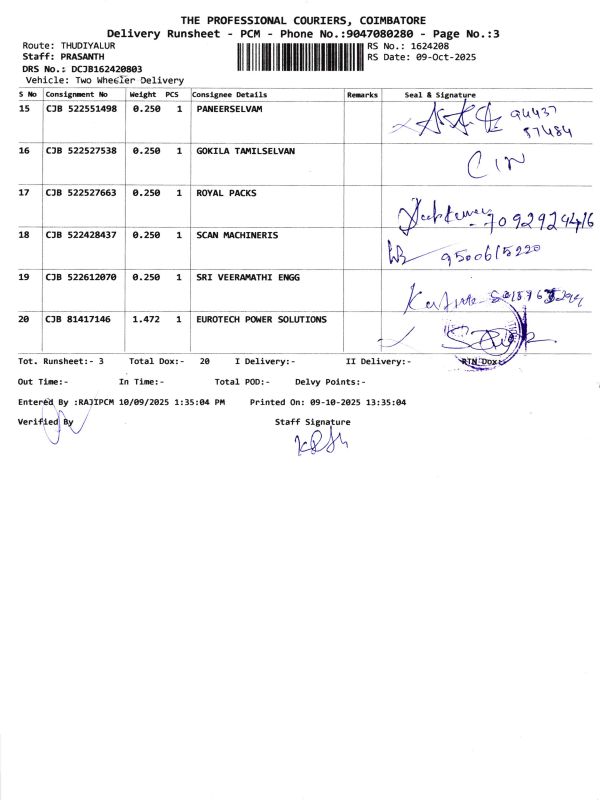 THE PROFESSIONAL COURIERS, COIMBATORE
Delivery Runsheet - PCM - Phone No.:9047080280 - Page No.:3
Route: THUDIYALUR RS No.: 1624208
Staff: PRASANTH RS Date: 09-Oct-2025
DRS No.: DCJB162420803
Vehicle: Two Wheeler Delivery
S No Consignment No Weight PCS Consignee Details Remarks Seal & Signature
15 CJB 522551498 0.250 1 PANEERSELVAM
94437
57484
16 CJB 522527538 0.250 1 GOKILA TAMILSELVAN
17 CJB 522527663 0.250 1 ROYAL PACKS
18 CJB 522428437 0.250 1 SCAN MACHINERIS
9500615220
19 CJB 522612070 0.250 1 SRI VEERAMATHI ENGG
20 CJB 81417146 1.472 1 EUROTECH POWER SOLUTIONS
Tot. Runsheet:- 3 Total Dox:- 20 I Delivery:- II Delivery:- RTN Dox:-
Out Time:- In Time:- Total POD:- Delvy Points:-
Entered By :RAJIPCM 10/09/2025 1:35:04 PM Printed On: 09-10-2025 13:35:04
Verified By Staff Signature